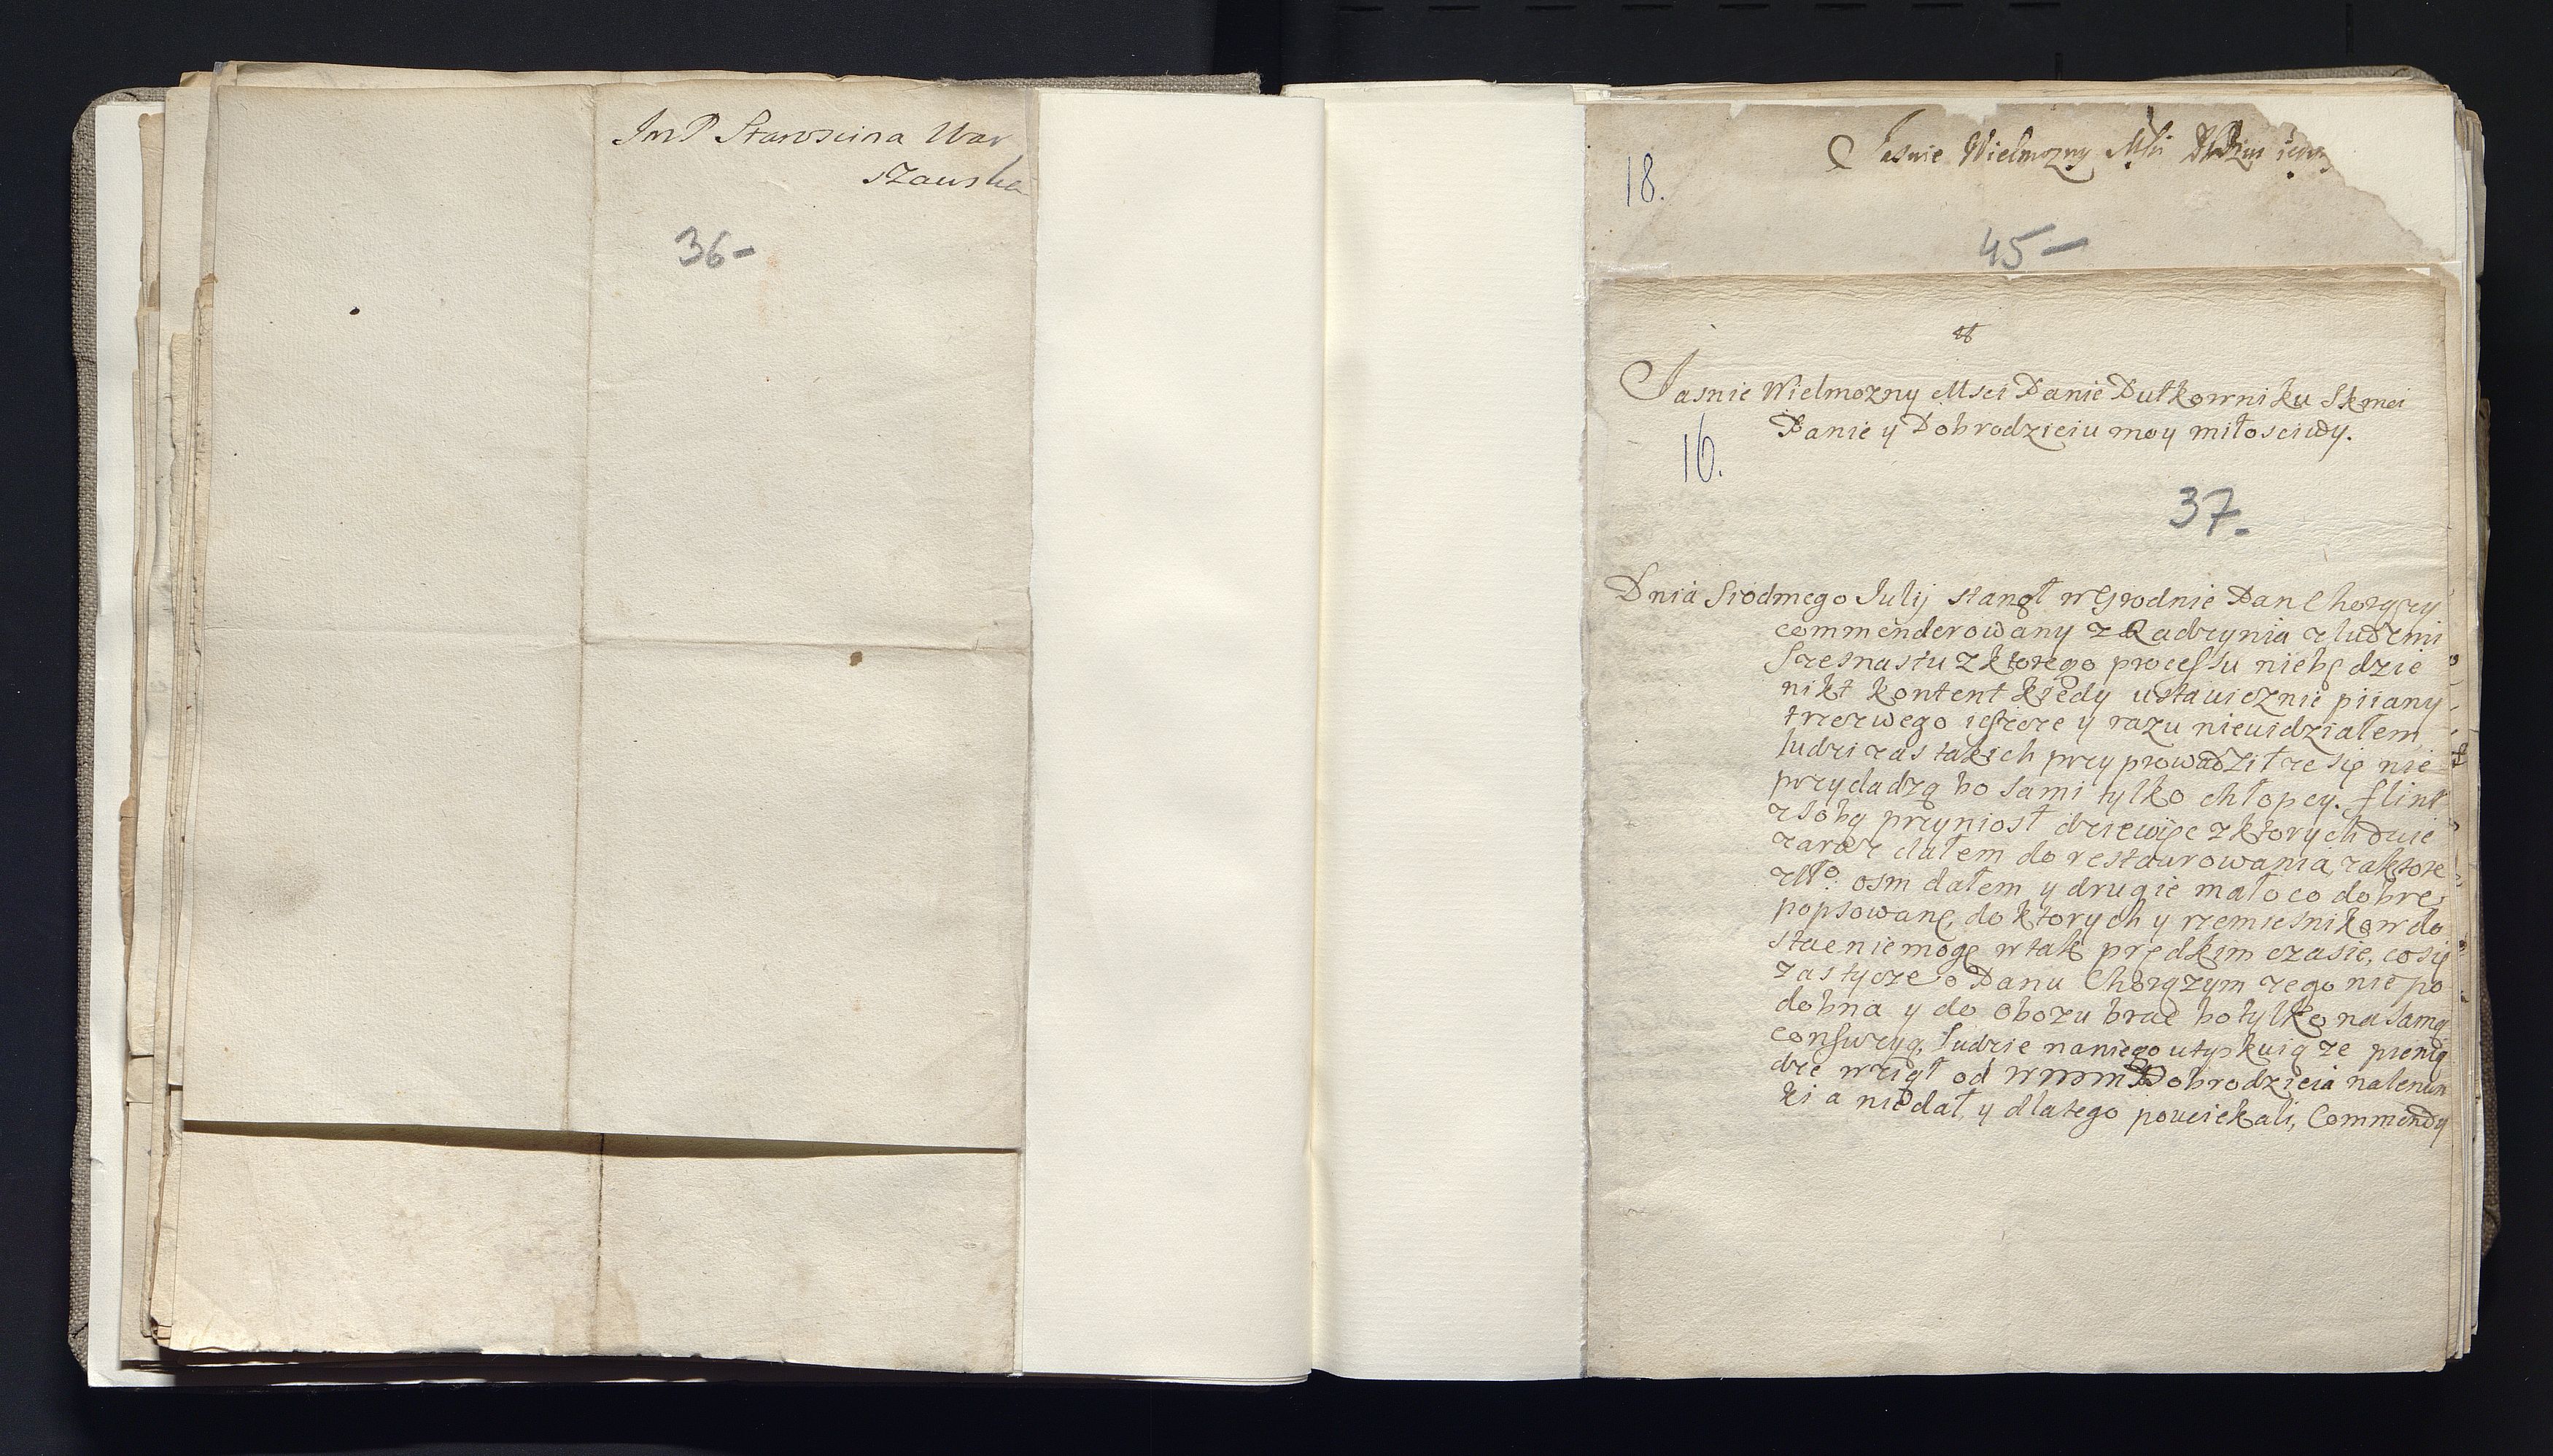 ImP Starościna War
szawska
36-
18.
Jasnie Wielmozny Mści
45-
Jasnie Wielmozny Msci Panie Pułkowniku
Panie y Dobrodzieiu moy miłosciwy.
16.
37-
Dnia Siodmego Julij stanął w Grodnie Pan Chorązy
commenderowany z Radzynia z ludzmi
Szesnastu z ktorego processu niebędzie
nikt kontent kiedy ustawicznie piiany
trzezwego ieszcze y razu niewidziałem
ludzi zas takich przyprowadził ze się nie
przydadzą bo sami tylko chłopcy. flint
z sobą przyniosł dziewięc z ktorych dwie
zaraz dałem do restaurowania, za ktore
zło osm dałem y drugie mało co dobre
popsowane, do ktorych y rzemiesnikow do
stac niemogę w tak prędkim czasie, co się
zas tycze o Panu Chorązym zego nie po
dobna y do Obozu brac bo tylko na samą
confuzyą, ludzie naniego utyskuią ze pienią
dze wziął od WMMPDobrodzieia na lenun
ki a niedał, y dlatego pouciekali, Commendy